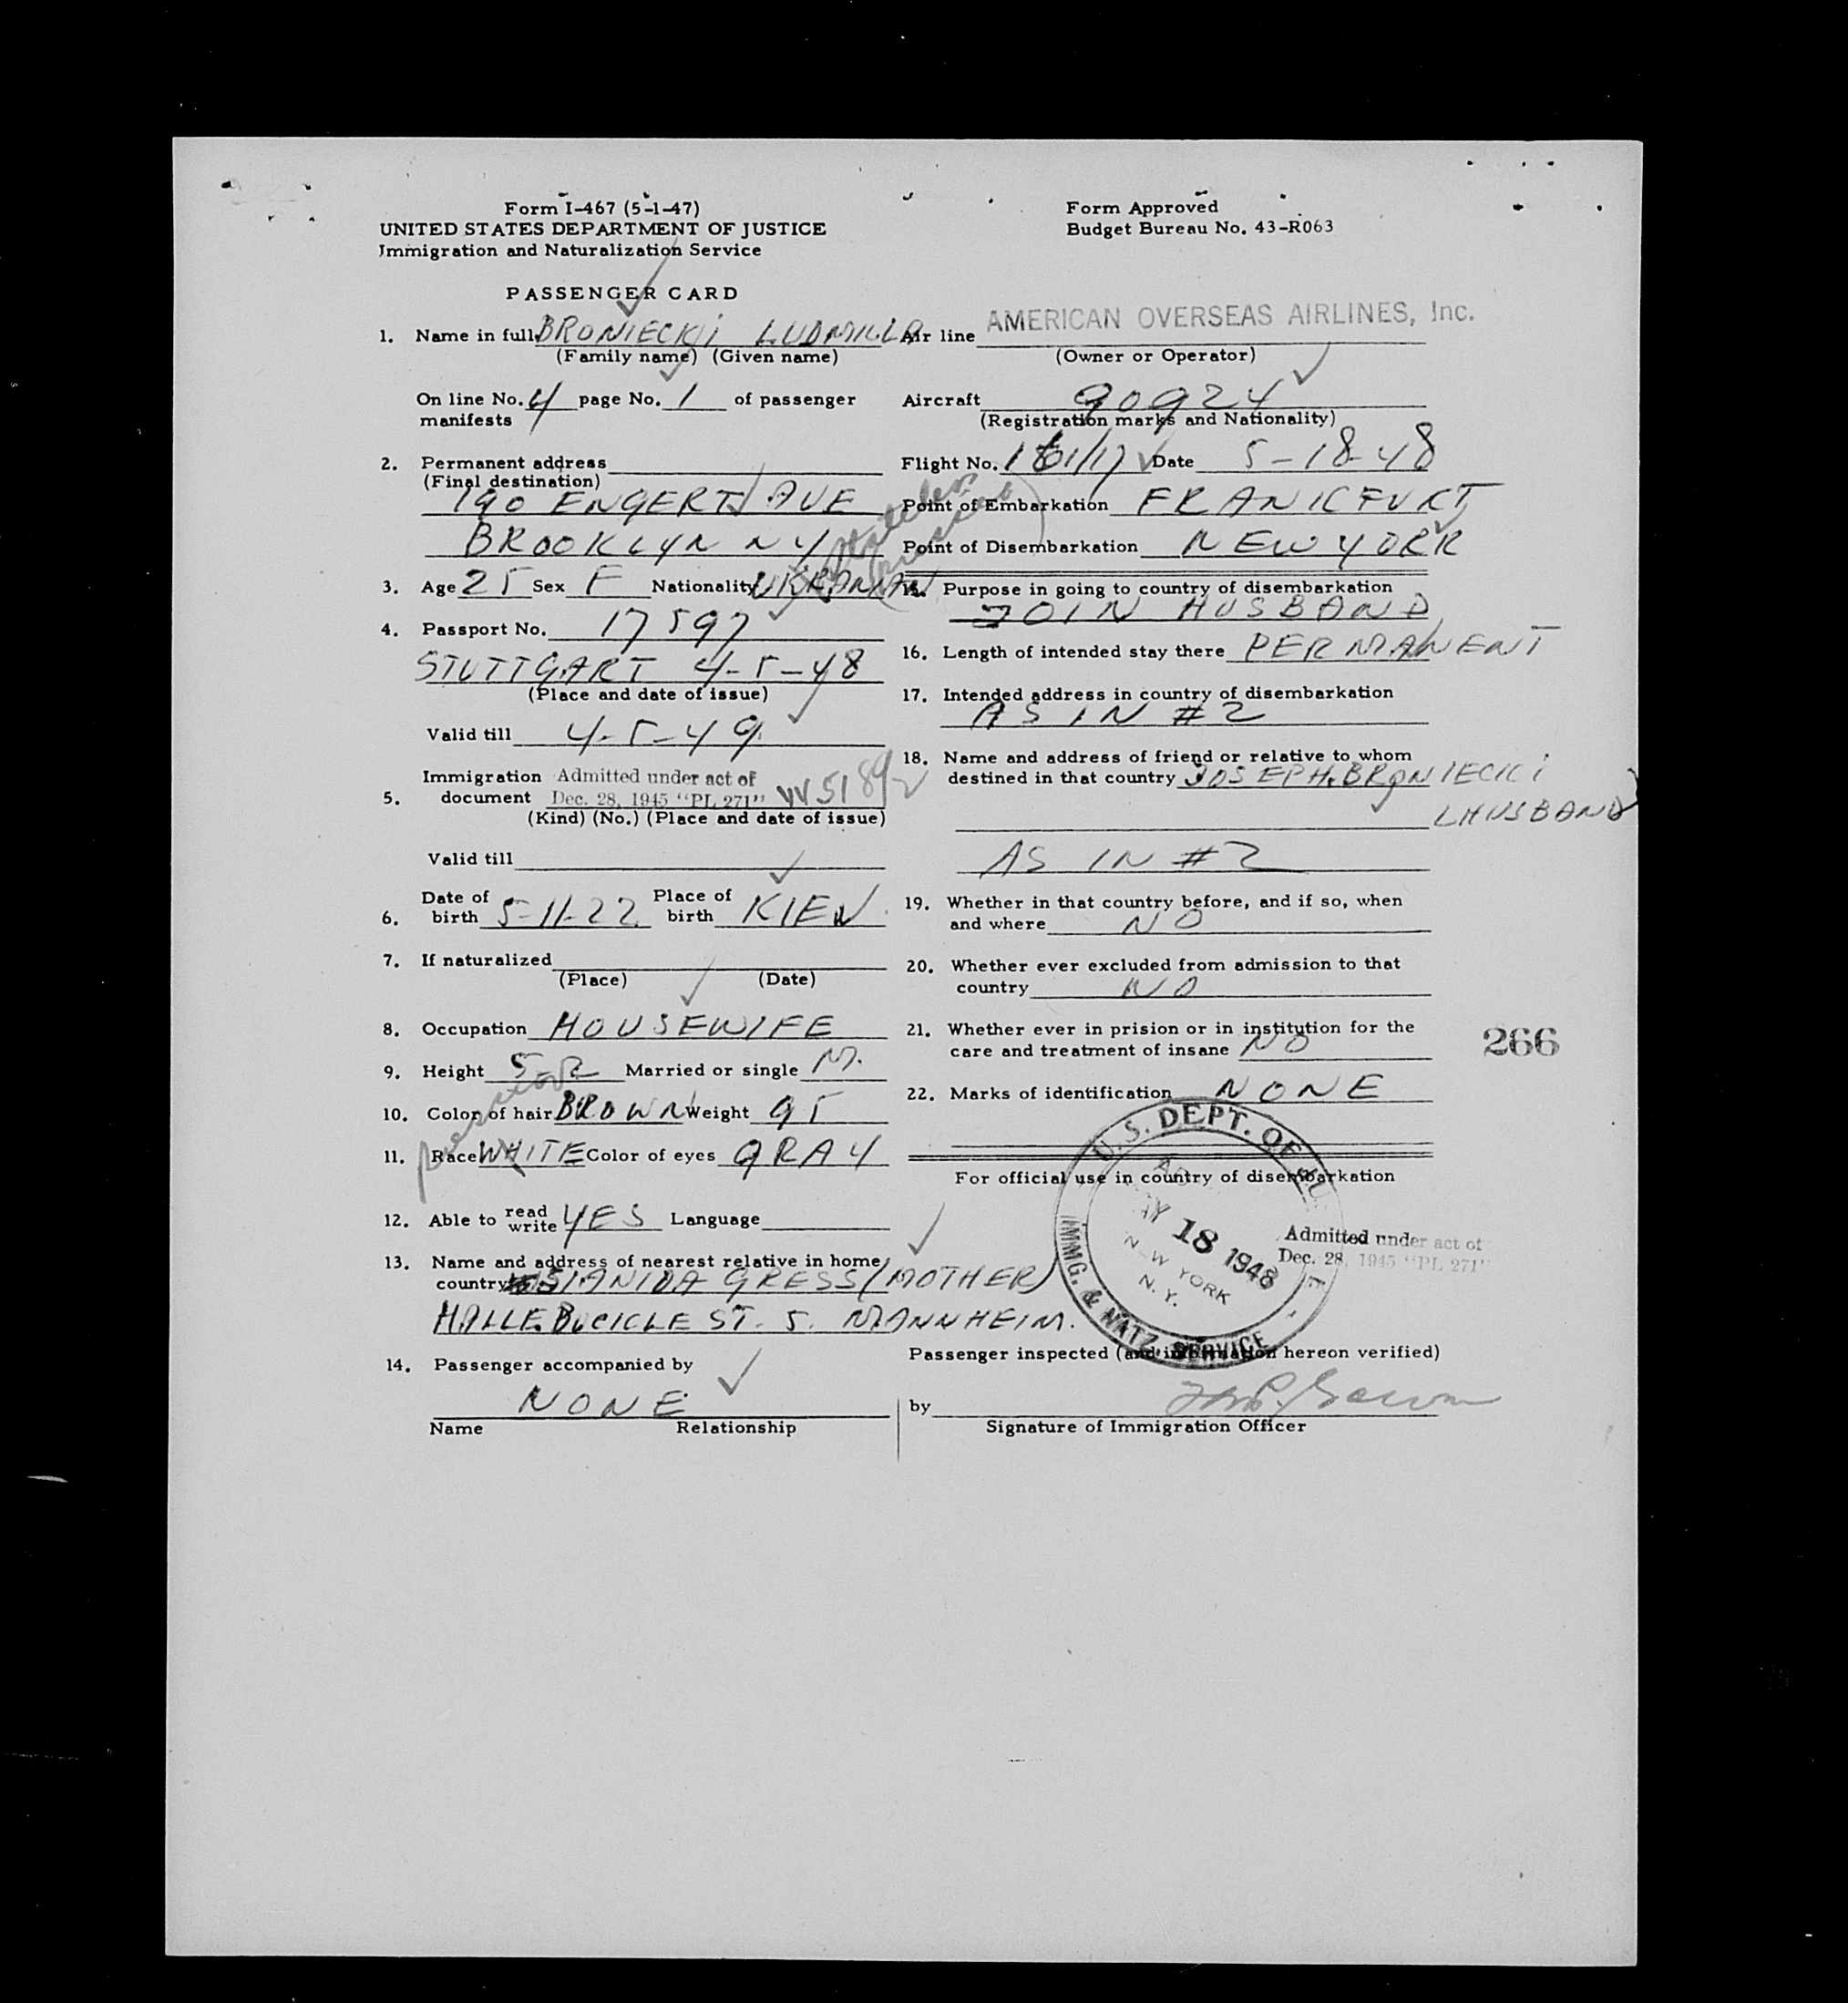 Form I-467 (5-1-47)
UNITED STATES DEPARTMENT OF JUSTICE
Immigration and Naturalization Service
Form Approved
Budget Bureau No. 43-R063
PASSENGER CARD
1. Name in full BRONIECKI LUDMILLA
(Family name) (Given name)
On line No. 4 page No. 1 of passenger
manifests
2. Permanent address
(Final destination)
190 ENGERT AVE
BROOKLYN NY
3. Age 25 Sex F Nationality UKRANIAN
4. Passport No. 17597
STUTTGART 4-5-48
(Place and date of issue)
Valid till 4-5-49
5. Immigration document Admitted under act of
Dec. 28, 1945 "PL 271" VV 51892
(Kind) (No.) (Place and date of issue)
Valid till
6. Date of birth 5-11-22 Place of birth KIEV
7. If naturalized
(Place) (Date)
8. Occupation HOUSEWIFE
9. Height 5-2 Married or single M.
10. Color of hair BROWN Weight 95
11. Race WHITE Color of eyes GRAY
12. Able to read write YES Language
13. Name and address of nearest relative in home
country GRESS (MOTHER)
ST. 5. MANNHEIM.
14. Passenger accompanied by
NONE
Name Relationship
Air line AMERICAN OVERSEAS AIRLINES, Inc.
(Owner or Operator)
Aircraft 90924
(Registration marks and Nationality)
Flight No. Date 5-18-48
Point of Embarkation FRANKFURT
Point of Disembarkation NEW YORK
stateless
15. Purpose in going to country of disembarkation
JOIN HUSBAND
16. Length of intended stay there PERMANENT
17. Intended address in country of disembarkation
AS IN #2
18. Name and address of friend or relative to whom
destined in that country JOSEPH BRONIECKI
(HUSBAND)
AS IN #2
19. Whether in that country before, and if so, when
and where NO
20. Whether ever excluded from admission to that
country NO
21. Whether ever in prision or in institution for the
care and treatment of insane NO
266
22. Marks of identification NONE
For official use in country of disembarkation
U.S. DEPT. OF
MAY 18 1948
NEW YORK
N. Y.
IMMG. & NATZ. SERVICE
Admitted under act of
Dec. 28, 1945 "PL 271"
Passenger inspected (and information hereon verified)
by
Signature of Immigration Officer